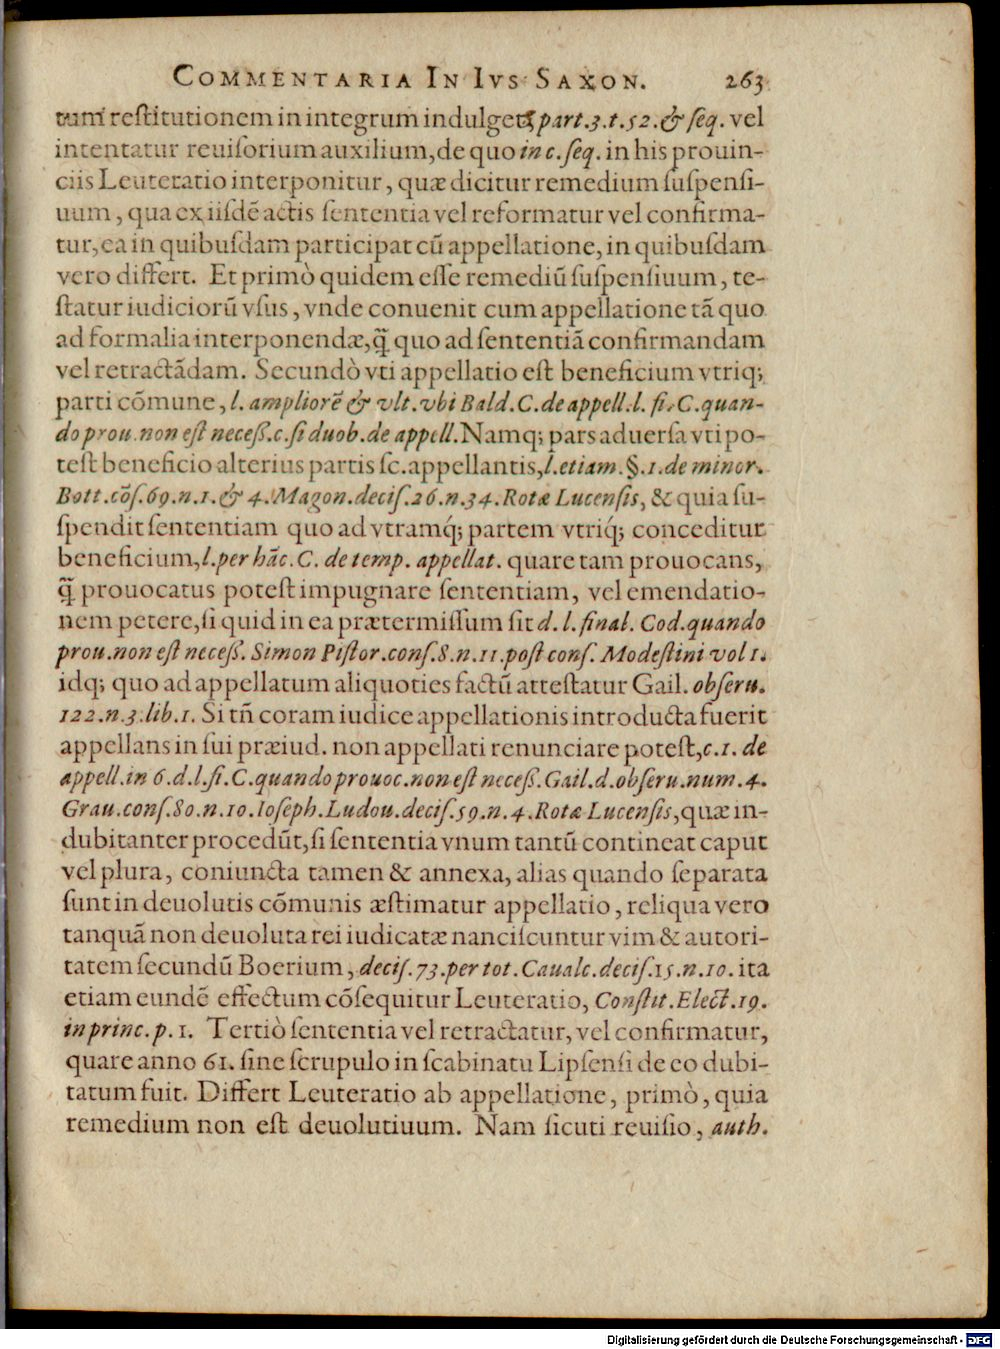 COMMENTARIA IN IVS SAXON. 263
tum restitutionem in integrum indulget, part. 3. t. 52. & seq. vel
intentatur reuisorium auxilium, de quo in c. seq. in his prouin-
ciis Leuteratio interponitur, quæ dicitur remedium suspensi-
uum, qua ex iisdē actis sententia vel reformatur vel confirma-
tur, ea in quibusdam participat cū appellatione, in quibusdam
vero differt. Et primò quidem esse remediū suspensiuum, te-
statur iudiciorū vsus, vnde conuenit cum appellatione tā quo
ad formalia interponendæ, q̃ quo ad sententiā confirmandam
vel retractādam. Secundò vti appellatio est beneficium vtriq;
parti cōmune, l. ampliorē & vlt. vbi Bald. C. de appell. l. fi. C. quan-
do prou. non est necess. c. si duob. de appell. Namq; pars aduersa vti po-
test beneficio alterius partis sc. appellantis, l. etiam. §. 1. de minor.
Bott. cōs. 69. n. 1. & 4. Magon. decis. 26. n. 34. Rotæ Lucensis, & quia su-
spendit sententiam quo ad vtramq́; partem vtriq́; conceditur
beneficium, l. per hāc. C. de temp. appellat. quare tam prouocans,
q̃ prouocatus potest impugnare sententiam, vel emendatio-
nem petere, si quid in ea prætermissum sit d. l. final. Cod. quando
prou. non est necess. Simon Pistor. cons. 8. n. 11. post cons. Modestini vol 1.
idq; quo ad appellatum aliquoties factū attestatur Gail. obseru.
122. n. 3. lib. 1. Si tñ coram iudice appellationis introducta fuerit
appellans in sui præiud. non appellati renunciare potest, c. 1. de
appell. in 6. d. l. fi. C. quando prouoc. non est necess. Gail. d. obseru. num. 4.
Grau. cons. 80. n. 10. Ioseph. Ludou. decis. 59. n. 4. Rotæ Lucensis, quæ in-
dubitanter procedūt, si sententia vnum tantū contineat caput
vel plura, coniuncta tamen & annexa, alias quando separata
sunt in deuolutis cōmunis æstimatur appellatio, reliqua vero
tanquā non deuoluta rei iudicatæ nanciscuntur vim & autori-
tatem secundū Boerium, decis. 73. per tot. Caualc. decis. 15. n. 10. ita
etiam eundē effectum cōsequitur Leuteratio, Constit. Elect. 19.
in princ. p. 1. Tertiò sententia vel retractatur, vel confirmatur,
quare anno 61. sine scrupulo in scabinatu Lipsensi de eo dubi-
tatum fuit. Differt Leuteratio ab appellatione, primò, quia
remedium non est deuolutiuum. Nam sicuti reuisio, auth.
Digitalisierung gefördert durch die Deutsche Forschungsgemeinschaft - DFG